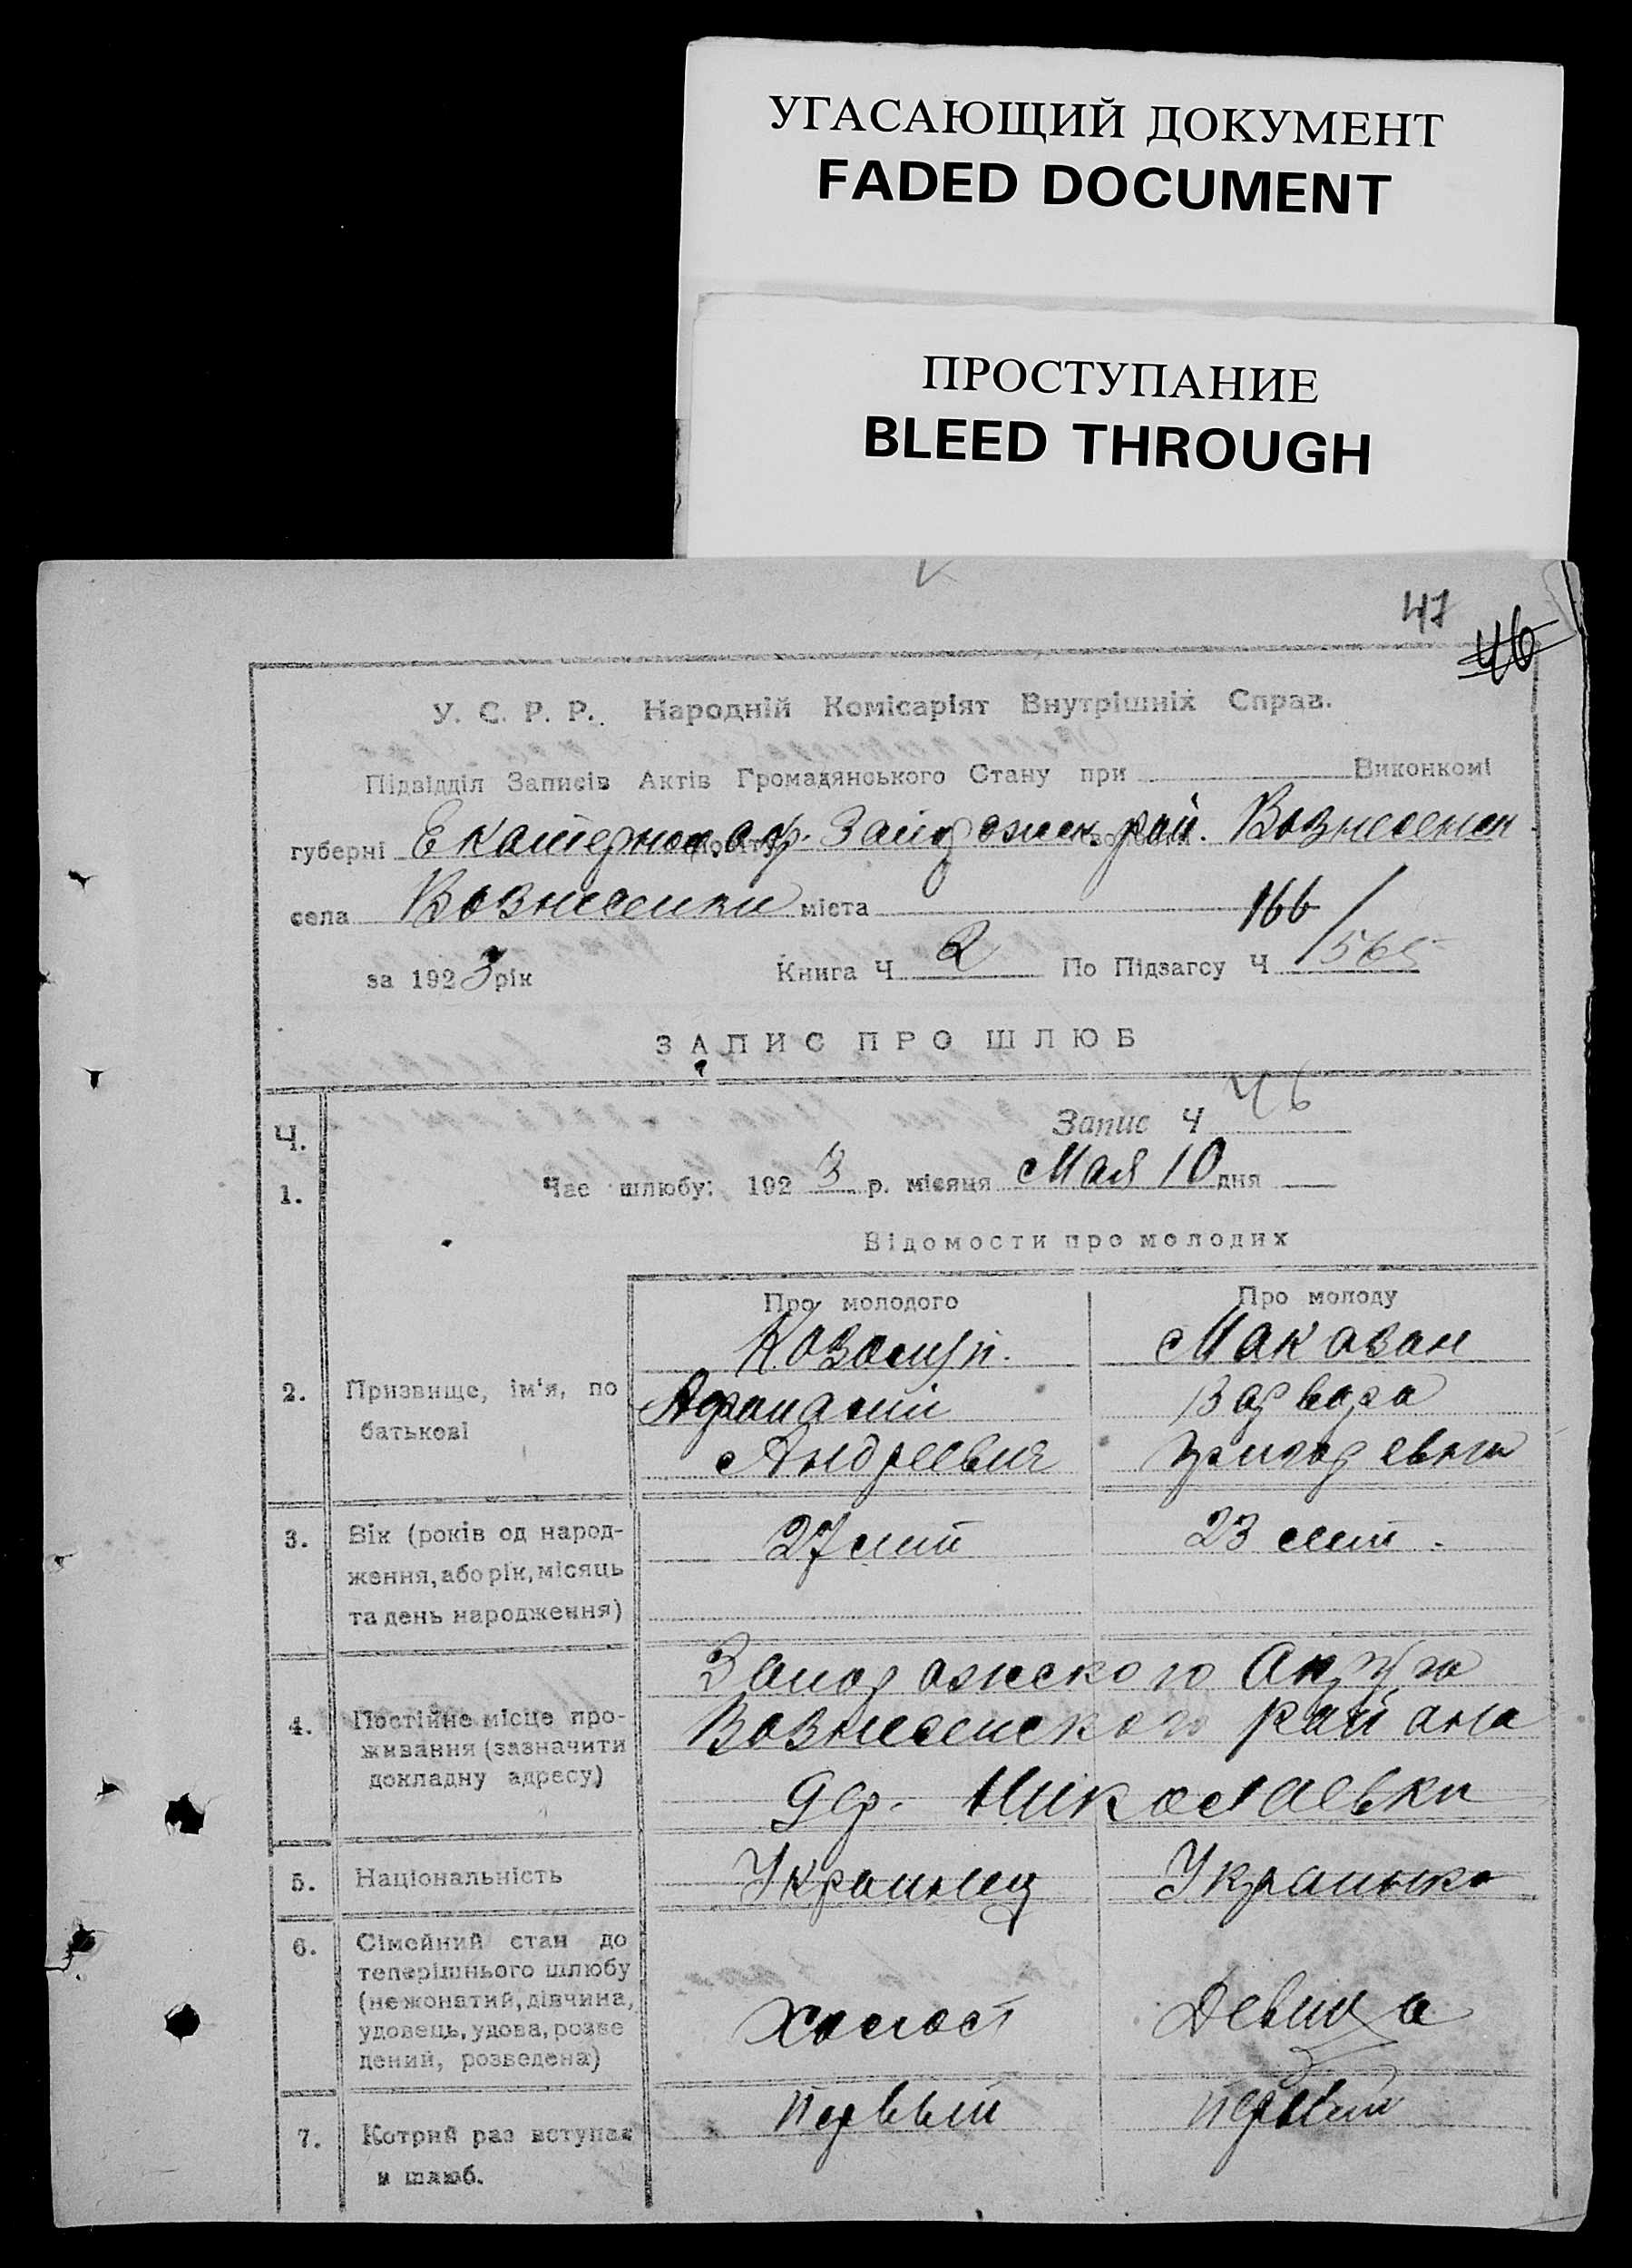 УГАСАЮЩИЙ ДОКУМЕНТ
FADED DOCUMENT
ПРОСТУПАНИЕ
BLEED THROUGH
47
46
У. С. Р. Р. Народній Комісаріят Внутрішніх Справ.
Підвідділ Записів Актів Громадянського Стану при Виконкомі
губерні Екатеринослав. Запорожск. рай. Вознесенск.
села Вознесенки міста 166
за 1923 рік Книга Ч 2 По Підзагсу Ч 565
ЗАПИС ПРО ШЛЮБ
Ч. Запис Ч 46
1. Час шлюбу: 1923 р. місяця Мая 10 дня
Відомости про молодих
Про молодого Про молоду
Макаван
2. Призвище, ім'я, по Афанасий Варвара
батькові Андреевич Григорьевна
3. Вік (років од народ- 27 лет 23 лет.
ження, або рік, місяць
та день народження)
Запорожского Округа
4. Постійне місце про- Вознесенского района
живання (зазначити
докладну адресу) дер. Николаевки
5. Національність Украинец Украинка
6. Сімейний стан до
теперішнього шлюбу
(нежонатий, дівчина, Холост Девица
удовець, удова, розве
дений, розведена)
7. Котрий раз вступає Первый первый
и шлюб.